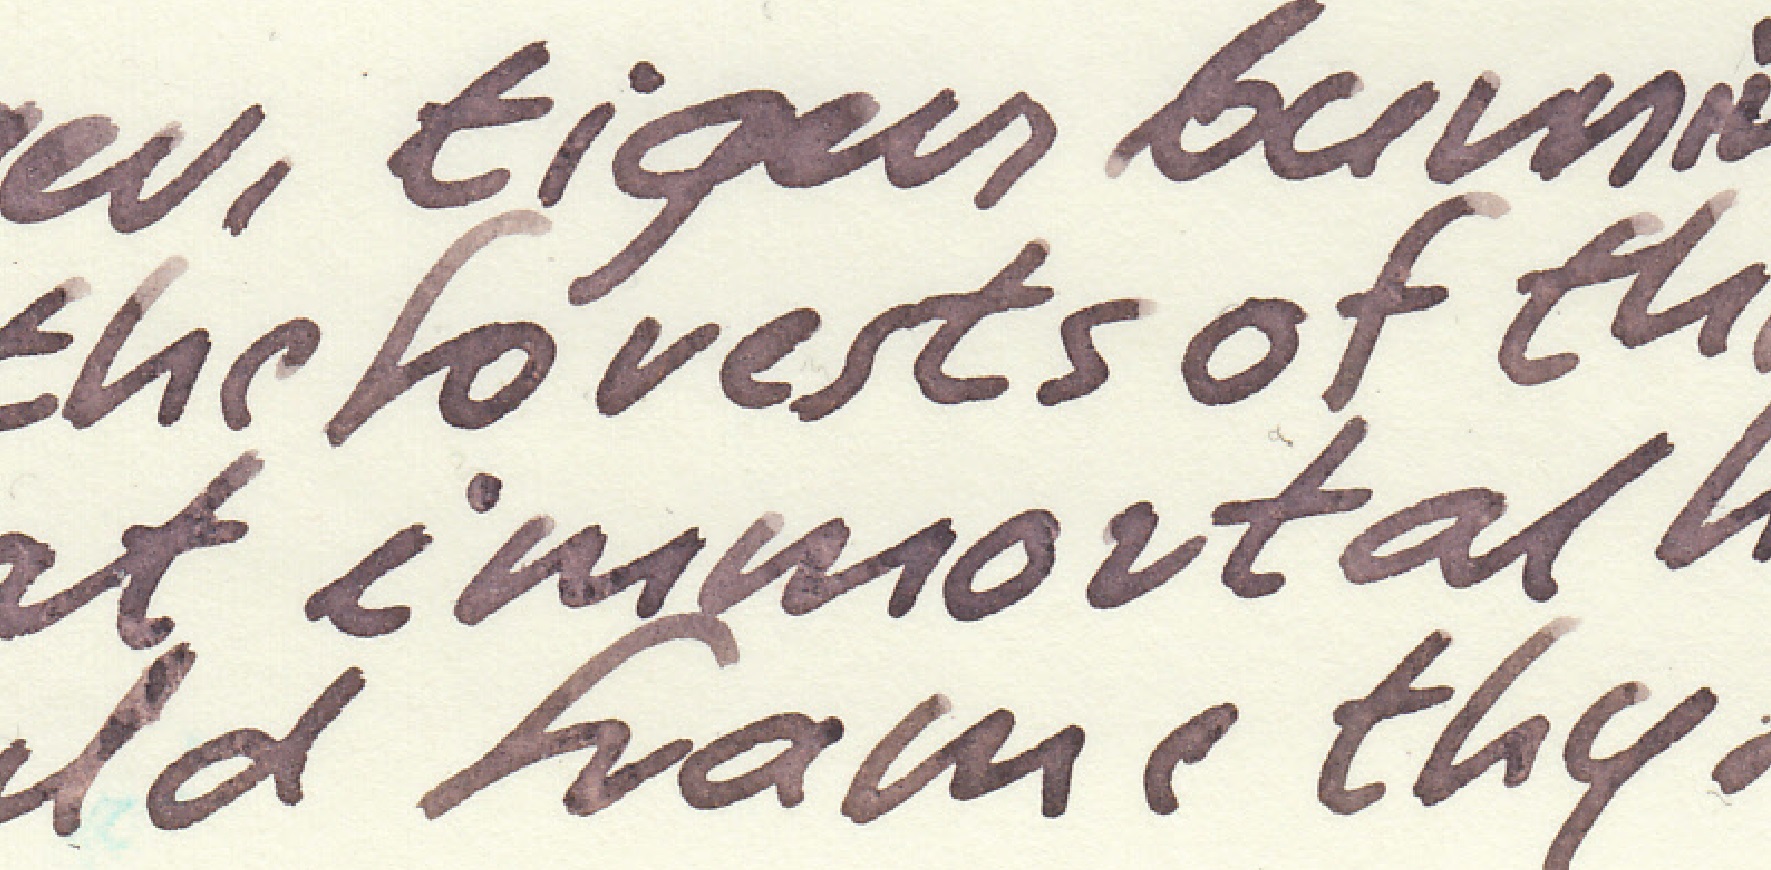 ger, tiger burni
the forests of the
at immortal h
uld frame thy